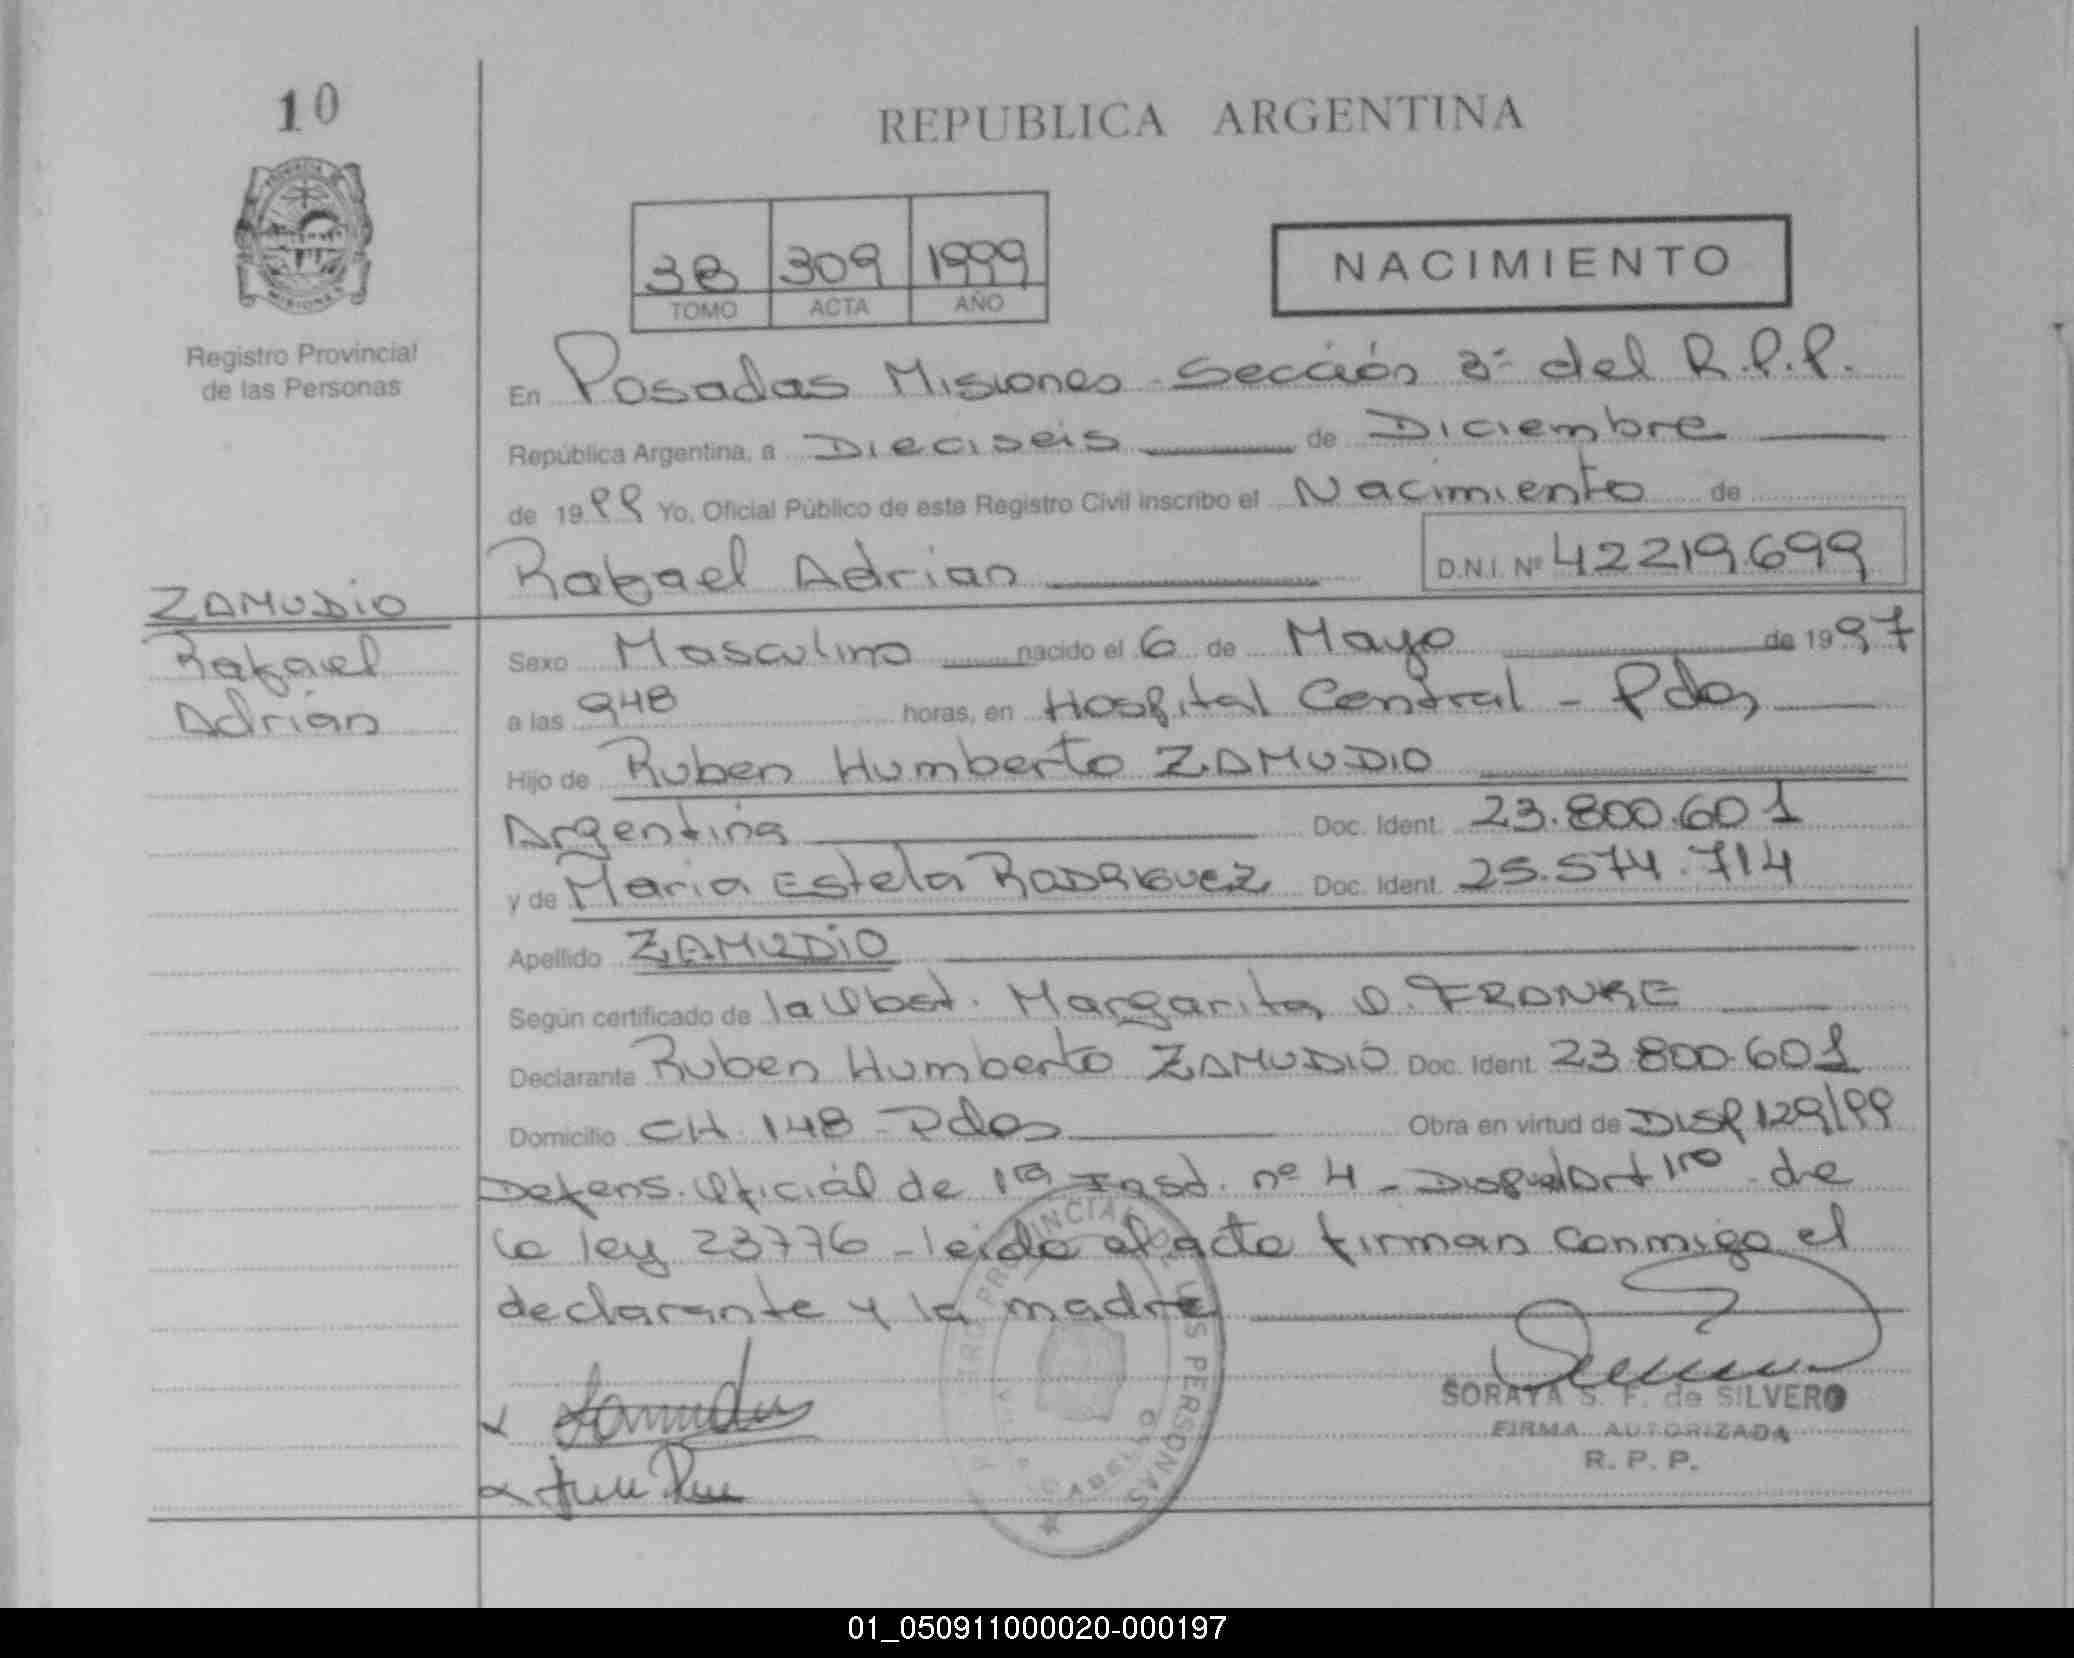 10
REPUBLICA ARGENTINA
3B 309 1999
TOMO ACTA AÑO
NACIMIENTO
Registro Provincial
de las Personas
En Posadas Misiones - Sección 3ª del R.P.P.
República Argentina, a Dieciseis de Diciembre
de 1999 Yo, Oficial Público de este Registro Civil inscribo el Nacimiento de
Rafael Adrian D.N.I. Nº 42219.699
ZAMUDIO
Rafael
Adrián
Sexo Masculino nacido el 6 de Mayo de 1997
a las 948 horas, en Hospital Central - Pdas
Hijo de Ruben Humberto ZAMUDIO
Argentina Doc. Ident. 23.800.601
y de Maria Estela RODRIGUEZ Doc. Ident. 25.574.714
Apellido ZAMUDIO
Según certificado de la Obst. Margarita O. FRANKE
Declarante Ruben Humberto ZAMUDIO Doc. Ident. 23.800.601
Domicilio CH. 148 - Pdas Obra en virtud de Disp 129/99
Defens. Oficial de 1ra Inst. nº 4 - Art 1ro de
la ley 23776 - leida el acta firman conmigo el
declarante y la madre
SORAYA S. F. de SILVERO
FIRMA AUTORIZADA
R. P. P.
01_050911000020-000197